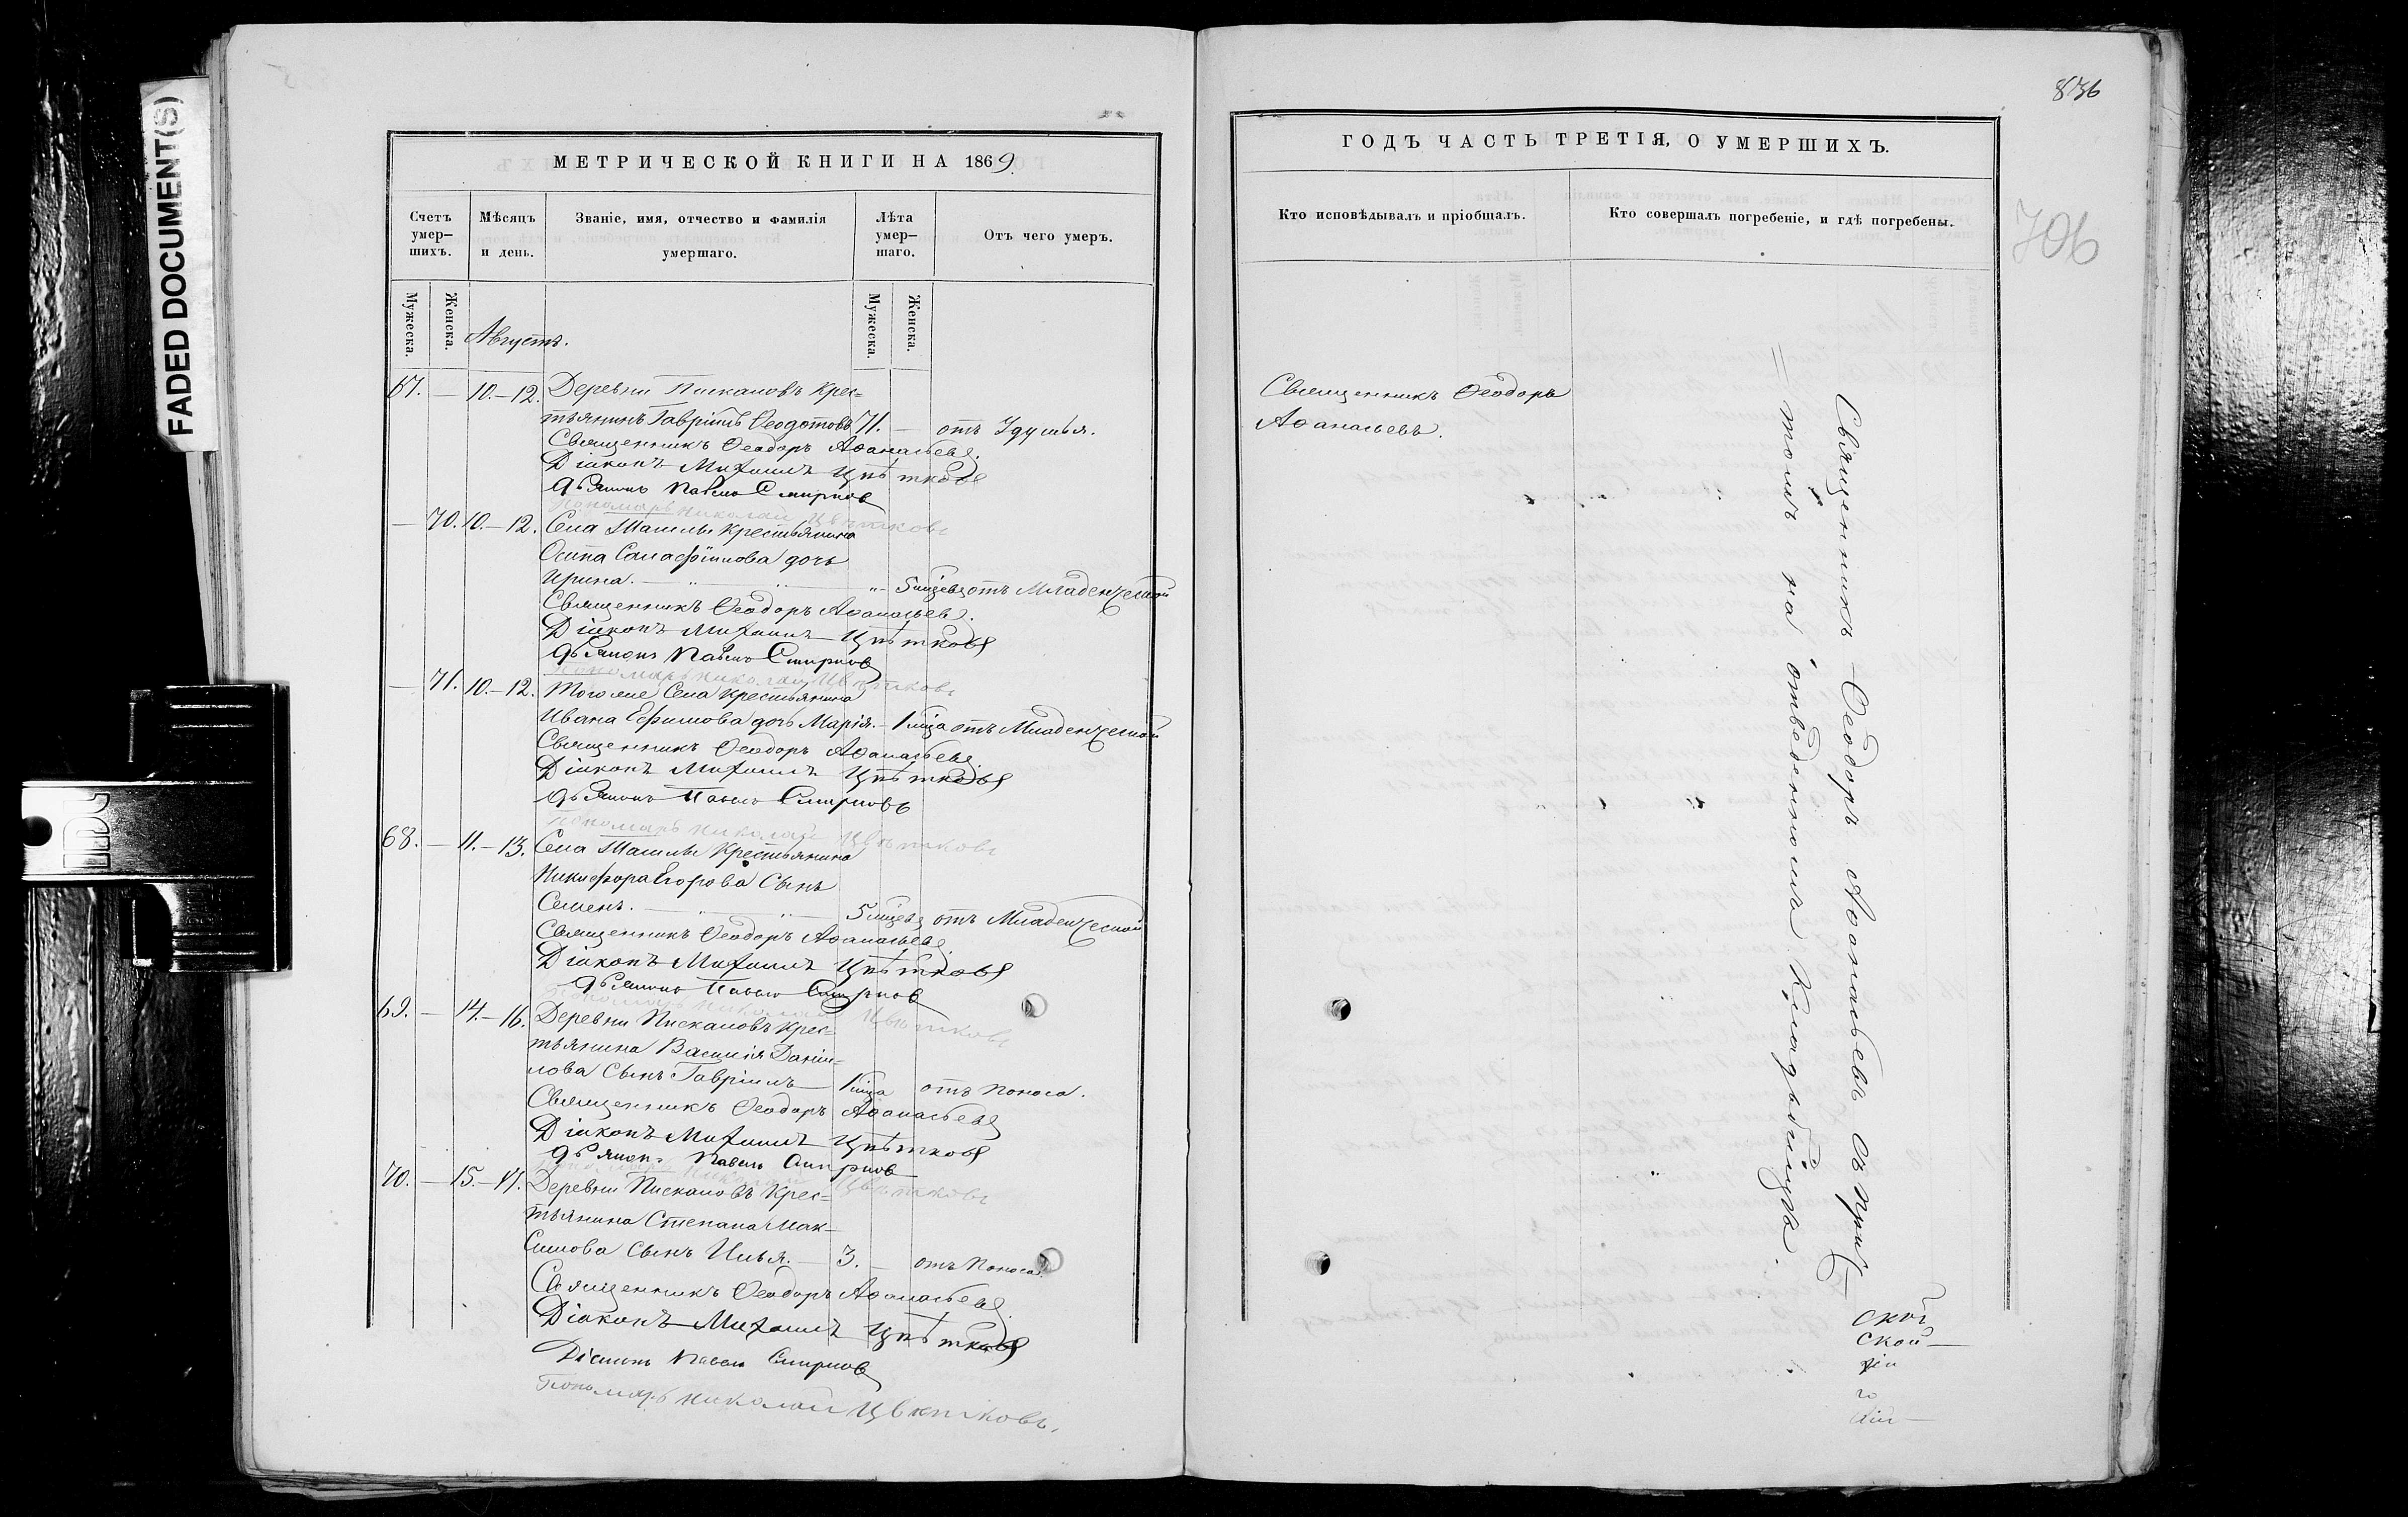 FADED DOCUMENT(S)
МЕТРИЧЕСКОЙ КНИГИ НА 1869.
Счетъ умер–шихъ.
Мѣсяцъ и день.
Званіе, имя, отчество и фамилія умершаго.
Лѣта умер–шаго.
Отъ чего умеръ.
Мужеска.
Женска.
Мужеска.
Женска.
Августъ.
67. — 10.–12. Деревни Пискаловъ Крес=
тьянинъ Гавріилъ Ѳеодотовъ 71. — отъ Удушья.
Священникъ Ѳеодоръ Аѳанасьевъ.
Діаконъ Михаилъ Цвѣтковъ
Дьячокъ Павелъ Смирновъ
Пономарь Николай Цвѣтковъ
— 70. 10.–12. Села крестьянина
Осипа дочь
Ирина. — " — " — " – 5 мцевъ отъ Младенческой
Священникъ Ѳеодоръ Аѳанасьевъ.
Діаконъ Михаилъ Цвѣтковъ
Дьячокъ Павелъ Смирновъ
Пономарь Николай Цвѣтковъ
— 71. 10.–12. Того же Села крестьянина
Ивана Ефимова дочь Марія. – 1 мца отъ Младенческой
Священникъ Ѳеодоръ Аѳанасьевъ.
Діаконъ Михаилъ Цвѣтковъ
Дьячокъ Павелъ Смирновъ
Пономарь Николай Цвѣтковъ
68. — 11.–13. Села Крестьянина
Никифора Егорова Сынъ
Семенъ. — " — " — 5 мцевъ отъ Младенческой
Священникъ Ѳеодоръ Аѳанасьевъ.
Діаконъ Михаилъ Цвѣтковъ
Дьячокъ Павелъ Смирновъ
Пономарь Николай Цвѣтковъ
69. — 14.–16. Деревни Пискаловъ Крес=
тьянина Василія Даніи=
лова Сынъ Гавріилъ — 1 мца отъ Поноса.
Священникъ Ѳеодоръ Аѳанасьевъ
Діаконъ Михаилъ Цвѣтковъ
Дьячокъ Павелъ Смирновъ
Пономарь Николай Цвѣтковъ
70. — 15.–17. Деревни Пискаловъ Крес=
тьянина Степана Мак–
симова Сынъ Илья. — 3. — отъ Поноса.
Священникъ Ѳеодоръ Аѳанасьевъ.
Діаконъ Михаилъ Цвѣтковъ
Дьячокъ Павелъ Смирновъ
Пономарь Николай Цвѣтковъ.
836
706
ГОДЪ ЧАСТЬ ТРЕТІЯ, О УМЕРШИХЪ.
Кто исповѣдывалъ и пріобщалъ.
Кто совершалъ погребеніе, и гдѣ погребены.
Священникъ Ѳеодоръ
Аѳанасьевъ.
Священникъ Ѳеодоръ Аѳанасьевъ съ при=
=томъ на отведенномъ Кладбищѣ.